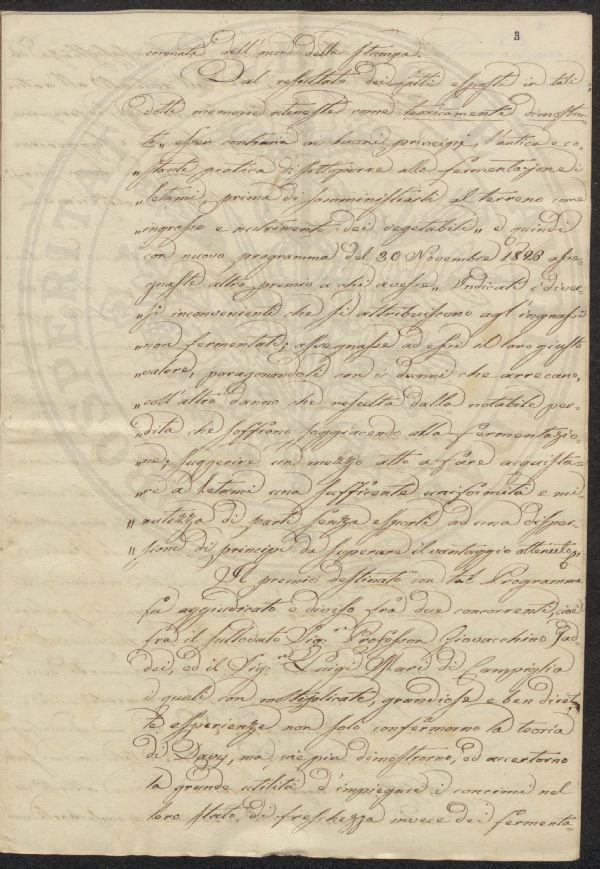 3
coronata dell'onor della stampa.
Dal resultato dei fatti esposti in tali
dotte memorie interesse come teoricamente dimostra-
ta „ esser contraria ai buoni principj, l'antica e co-
„ stante pratica di sottoporre alla fermentazione i
„ letami, prima di somministrarli al terreno come
„ ingrasso e nutrimento dei vegetabili „ e quindi
con nuovo programma del 30 Novembre 1823 asse-
gnasse altro premio a chi avesse „ Indicati i diver-
„ si inconvenienti che si attribuiscono agl'ingrassi
„ non fermentati; assegnasse ad essi il loro giusto
„ valore, paragonandoli con i danni che arrecano,
„ coll'altro danno che resulta dalla notabile per-
„ dita che soffrono soggiacendo alla fermentazio-
„ ne; suggerire un mezzo atto a fare acquista-
„ re a letami una sufficente uniformità e mi
„ nutezza di parti senza esporli ad una disper-
„ sione di principj da superare il vantaggio ottenuto „
Il premio destinato con tal Programma
fu aggiudicato e diviso frà due concorrenti, cioè
frà il sullodato Sig.re Professor Giovacchino Tad-
dei, ed il Sig.re Luigi Marci di Campiglia
i quali con moltiplicate, grandiose e ben diret-
te esperienze non solo confermarno la teoria
di Davy, ma vie più dimostrarno, ed accertarno
la grande utilità d'impiegare i concimi nel
loro stato di freschezza invece dei fermenta-